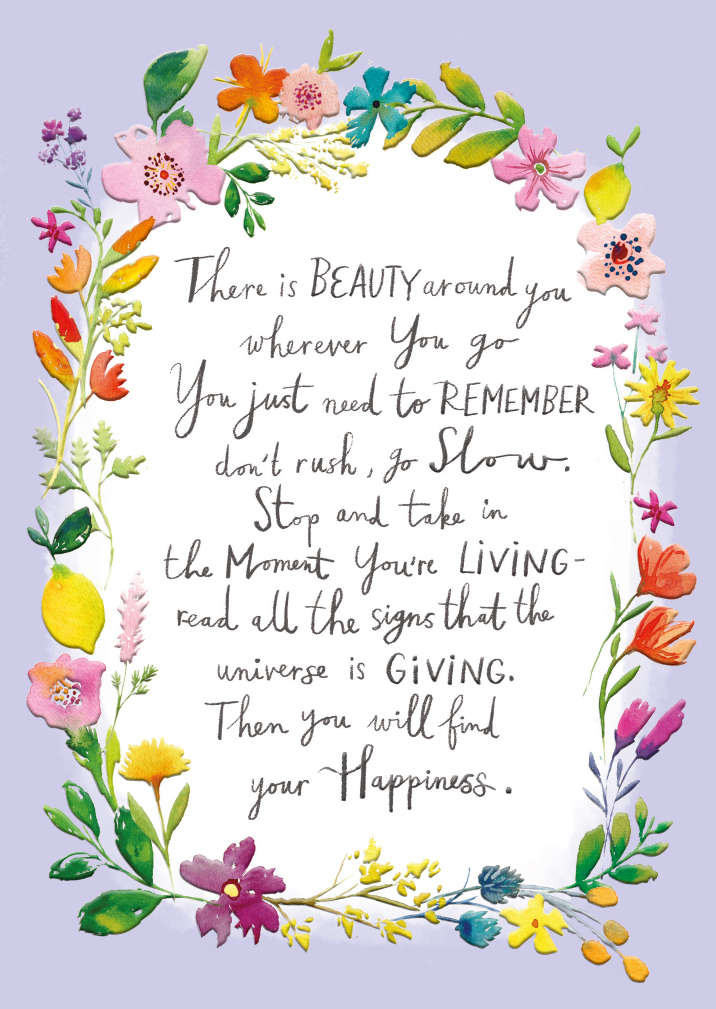 There is BEAUTY around you
wherever You go
You just need to REMEMBER
don't rush, go Slow.
Stop and take in
the Moment You're LiViNG-
read all the signs that the
universe is GiViNG.
Then you will find
your Happiness.